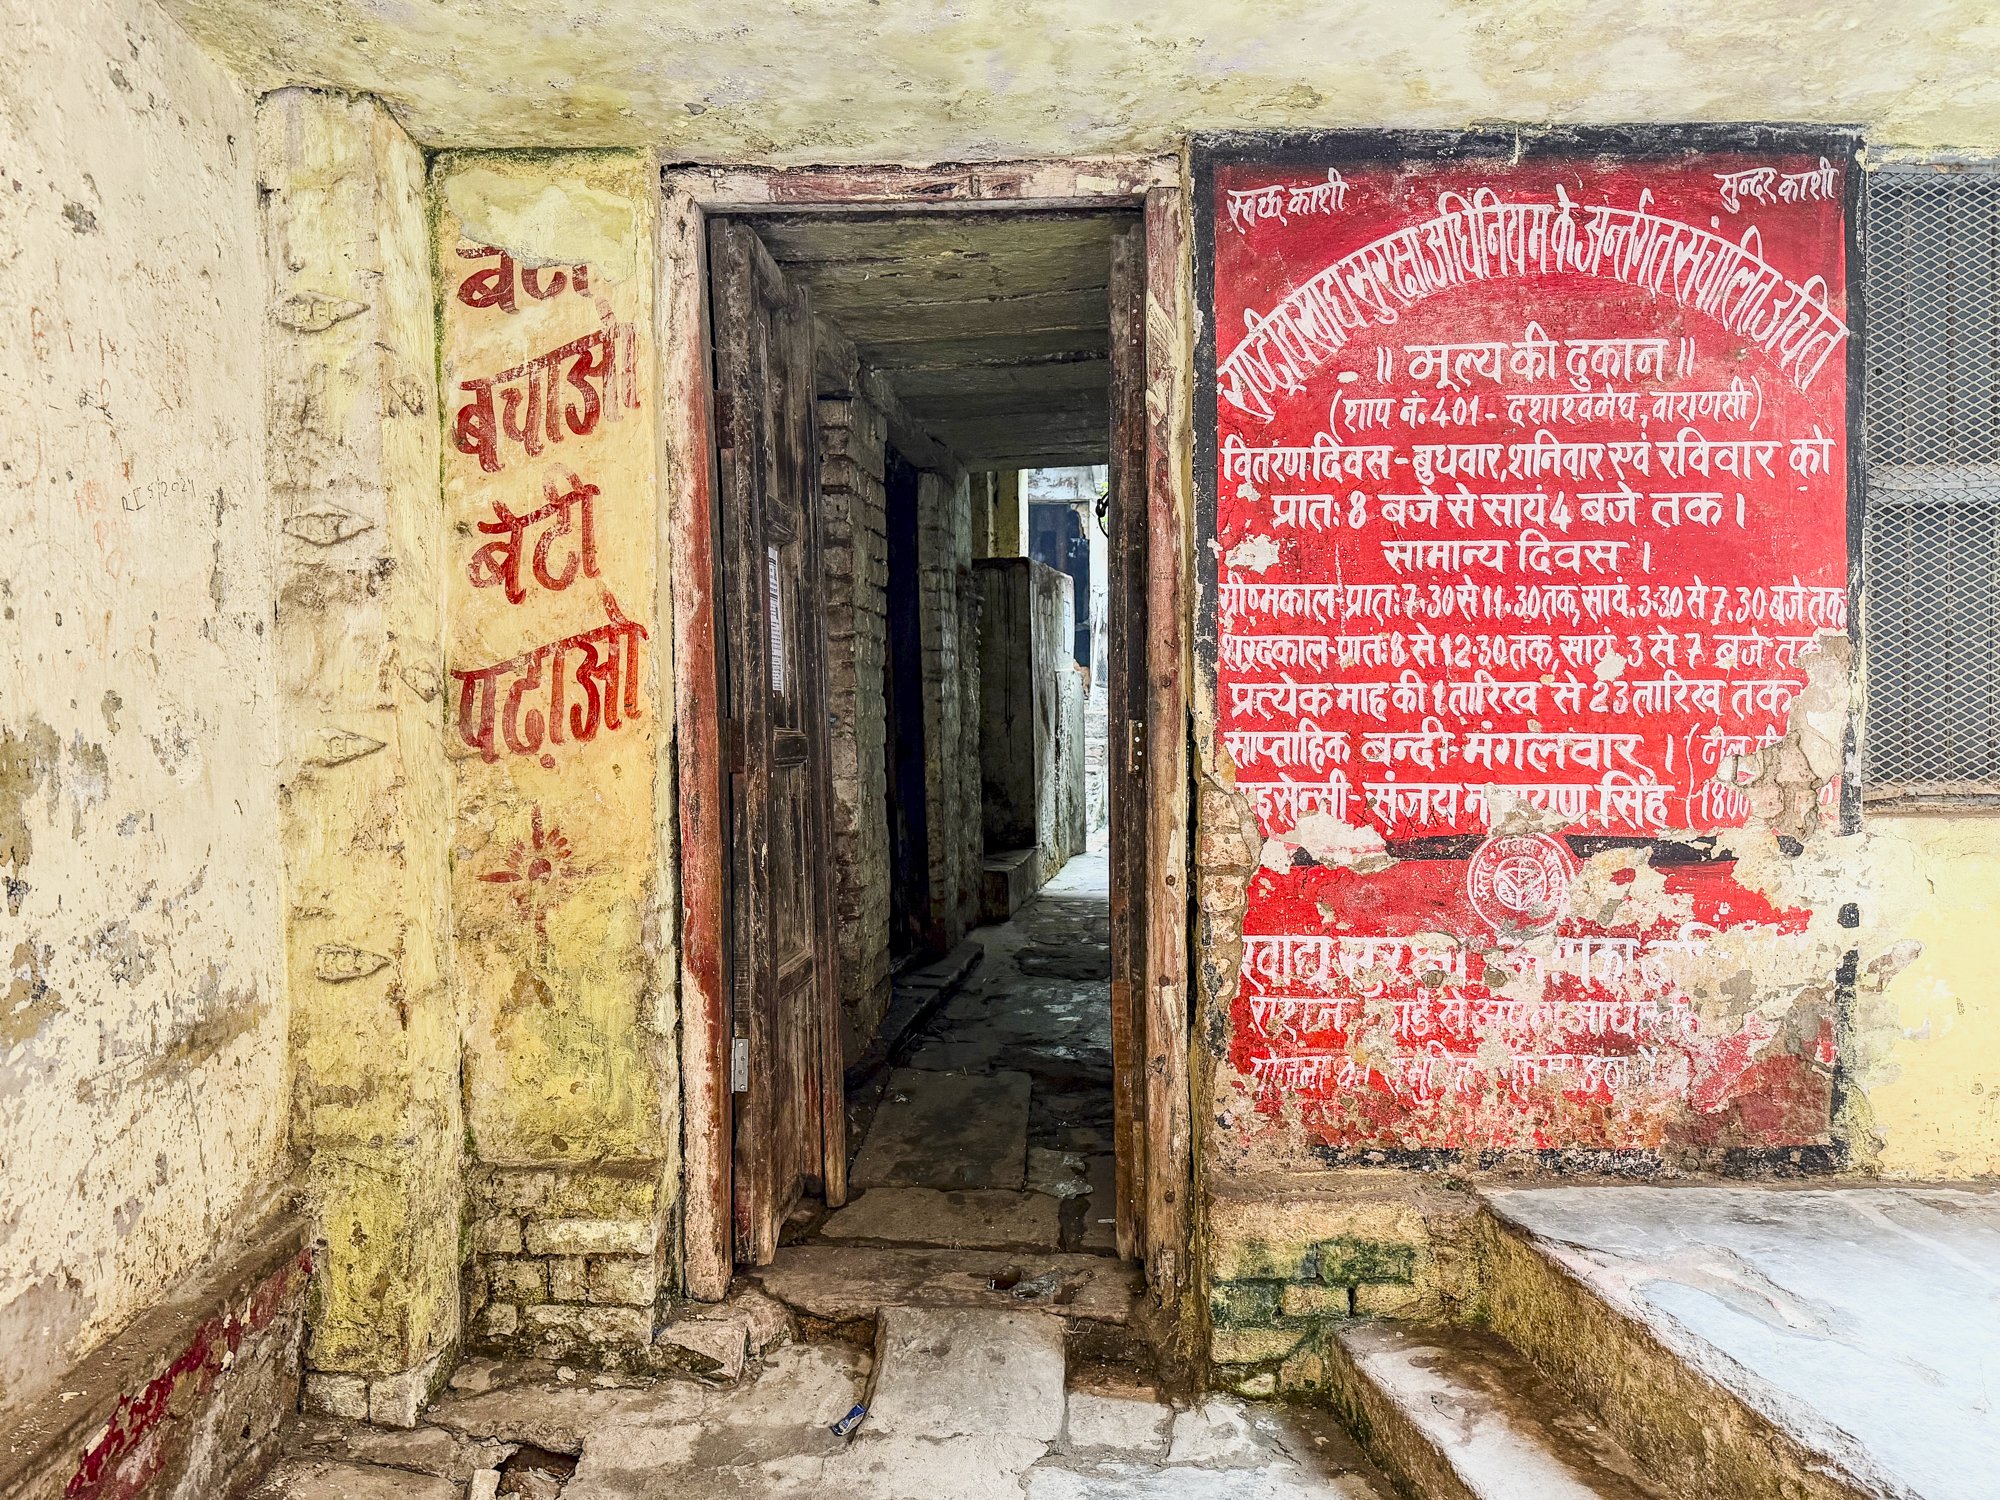 बचाओ
बेटी
पढ़ाओ
स्वच्छ काशी
सुन्दर काशी
राष्ट्रीय खाद्य सुरक्षा अधिनियम के अन्तर्गत संचालित उचित
॥ मूल्य की दुकान ॥
(शाप नं. 401 - दशाश्वमेघ, वाराणसी)
वितरण दिवस - बुधवार, शनिवार एवं रविवार को
प्रातः 8 बजे से सायं 4 बजे तक ।
सामान्य दिवस ।
ग्रीष्मकाल-प्रातः 7.30 से 11.30 तक, सायं. 3.30 से 7.30 बजे तक
शरदकाल-प्रातः 8 से 12.30 तक, सायं. 3 से 7 बजे तक
प्रत्येक माह की 1 तारिख से 23 तारिख तक
साप्ताहिक बन्दी - मंगलवार । (टोल
संजय सिंह (1800
खाद्य सुरक्षा
से अपना आधार